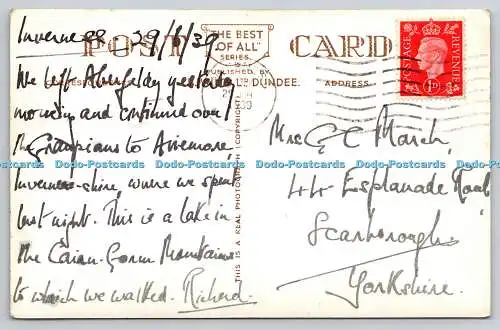 Inverness - 29/6/39
POST CARD
"THE BEST
OF ALL"
SERIES
PUBLISHED BY
DUNDEE.
ADDRESS
POSTAGE REVENUE
1D
THIS IS A REAL PHOTOGRAPH (COPYRIGHT)
We left Aberfeldy yesterday
morning and continued over
the Grampians to Aviemore,
Inverness-shire, where we spent
last night. This is a lake in
the Cairn-Gorm Mountains
to which we walked. Richard.
Mrs G C March,
44 Esplanade Road
Scarborough
Yorkshire.
Dodo-Postcards Dodo-Postcards Dodo-Postcards Dodo-Postcards Dodo-Postcards Dodo-Postcards